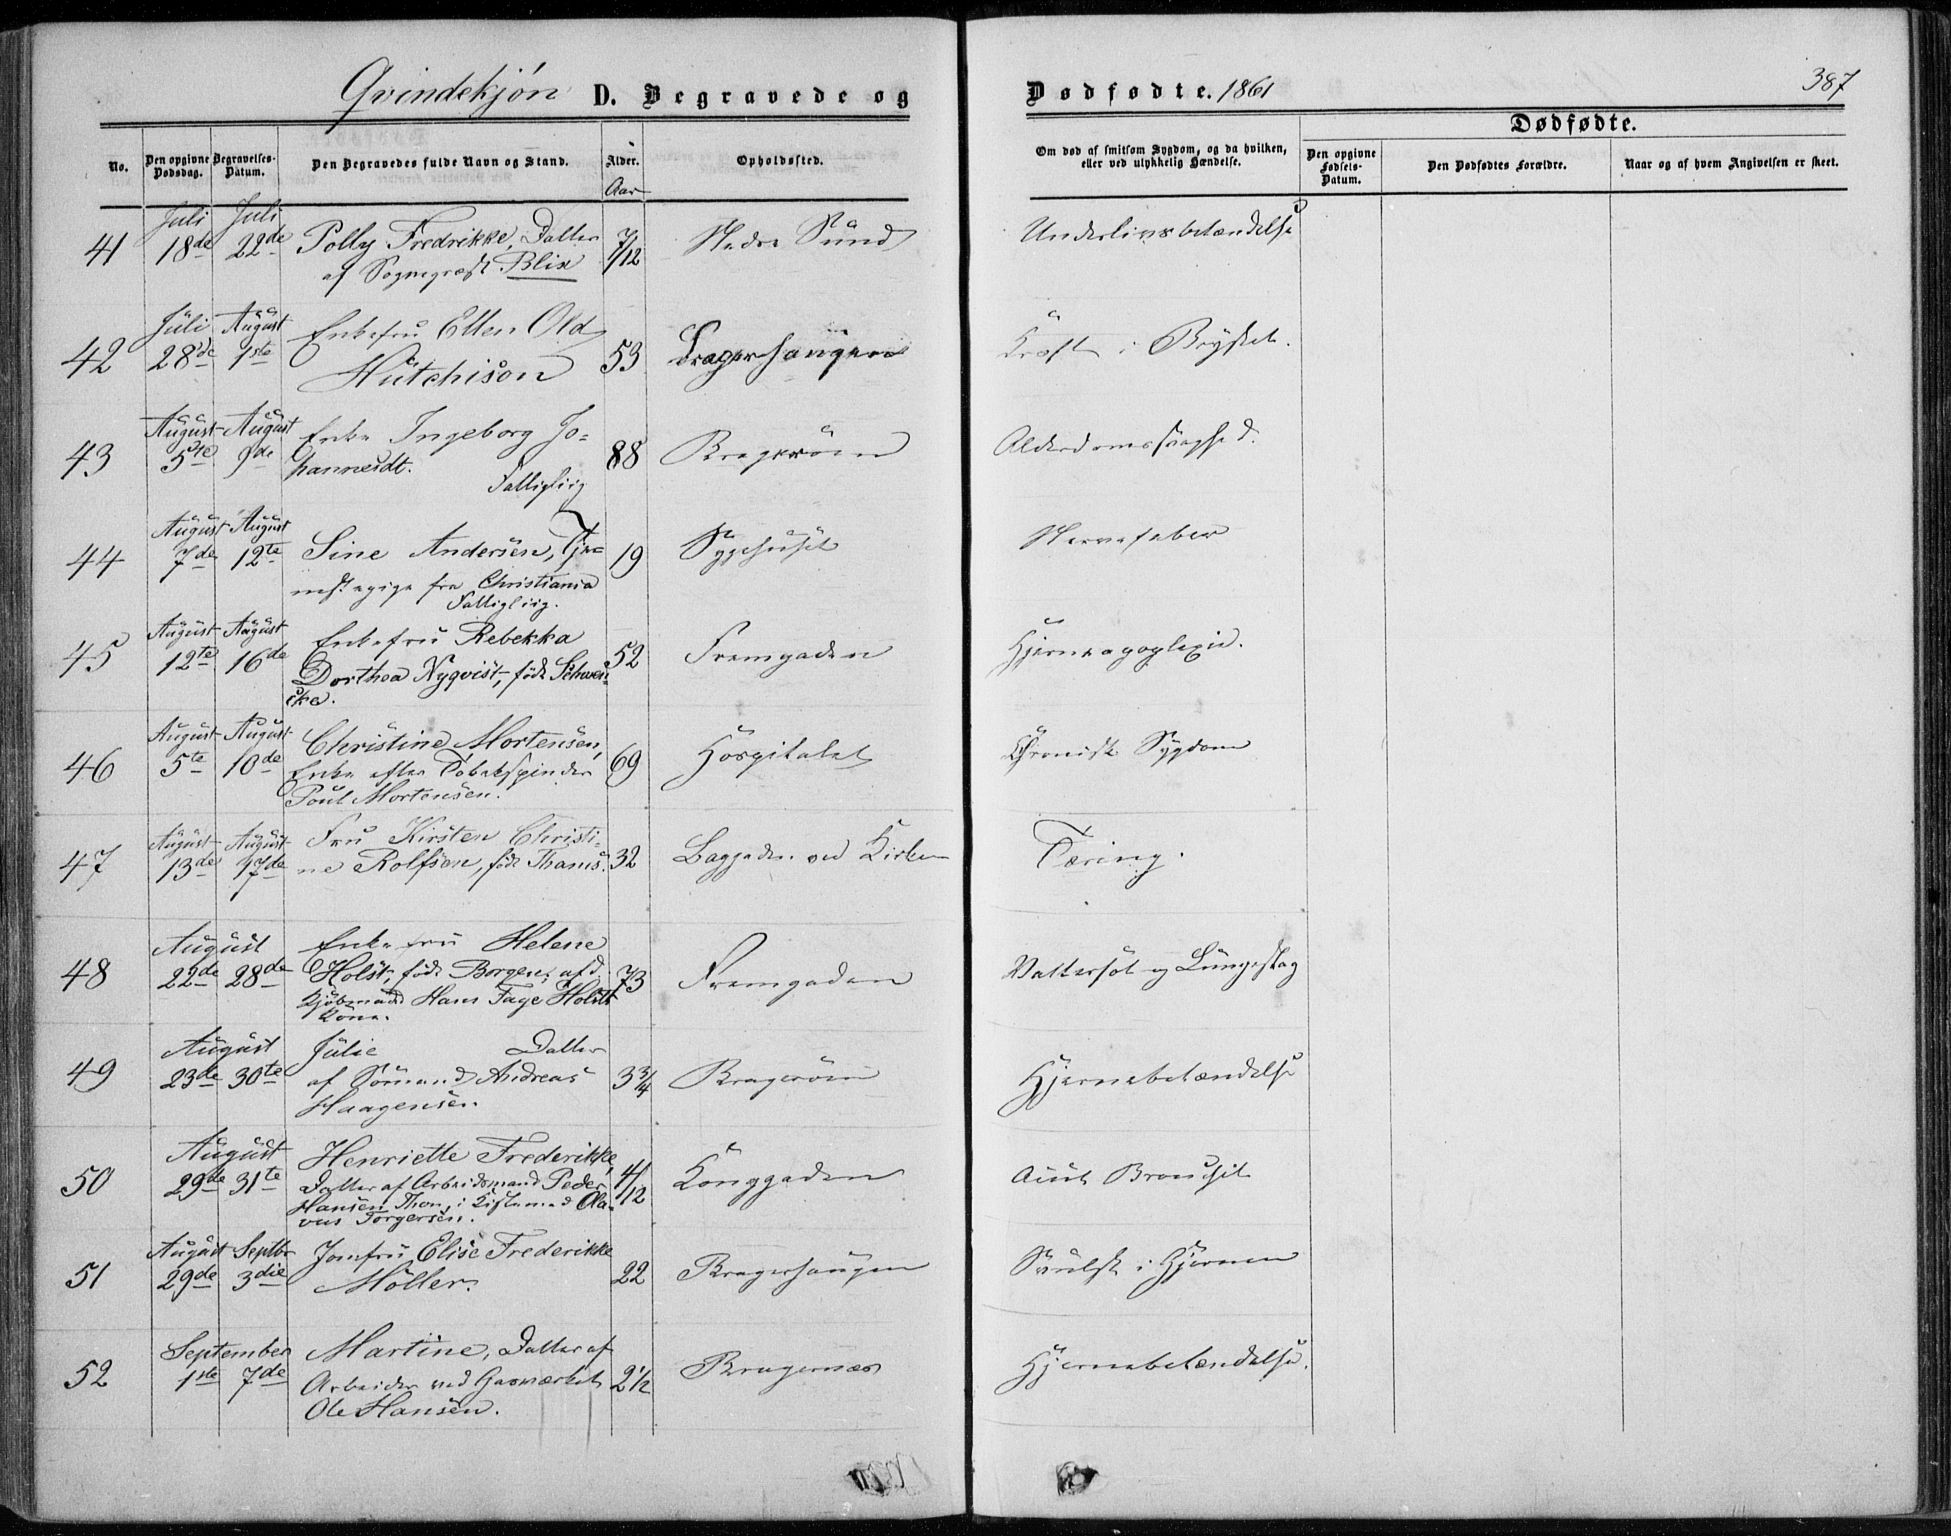 Qvindekjön D. Begravede og
Dødfødte. 1861
387
No.
Den opgivne Dødsdag.
Begravelses-Datum.
Den Begravedes fulde Navn og Stand.
Alder.
Aar
Opholdssted.
Om død af smitsom Sygdom, og da hvilken,
eller ved ulykkelig Hændelse.
Dødfødte.
Den opgivne Fødsels-Datum.
Den Dødfødtes Forældre.
Naar og af hvem Angivelsen er skeet.
Juli Juli
41 18de 22de Polly Fredrikke, Datter 7/12 Nedre Sund Underlivsbetændelse
af Sognepræst Blix
Juli August Enkefru Ellen Old
42 28de 1ste Hutchison 53 Bragerhaugen Kræft i Brystet.
August August Enke Ingeborg Jo-
43 5te 9de hannesdt. 88 Bragerøen Alderdomssvaghed.
Fattiglig
August August
44 7de 12te Sine Andersen, Tje- 19 Sygehuset Nervefeber
nestepige fra Christiania
Fattigliig.
August August Enkefru Rebekka
45 12te 16de Dorthea Nyqvist, født Schwen- 52 Fremgaden Hjerneapoplexie.
cke.
August August Christine Mortensen,
46 5te 10de Enke efter Tobakspinder 69 Hospitalet Chronisk Sygdom
Poul Mortensen.
August August Fru Kirsten Christi-
47 13de 17de ne Rolfsen, født Thams. 32 Baggaden ved Kirken Tæring.
August Enkefru Helene
48 22de 28de Holst, født Borgen, afd. 73 Fremgaden Vattersot og Lungeslag
Kjøbmand Hans Fage Holsts
Kone.
August Julie Datter
49 23de 30te af Sömand Andreas 3 3/4 Bragerøen Hjernebetændelse
Haagensen
August Henriette Frederikke,
50 29de 31te Datter af Arbeidsmand Peder 4/12 Konggaden Acut Bronchit
Hansen Thon, i Kiste med Ola-
vus Torgersen.
August Septbr Jomfru Elise Frederikke
51 29de 3die Möller. 22 Bragerhaugen Svulst i Hjernen
September Martine, Datter af
52 1ste 7de Arbeider ved Gasværket 2 1/2 Bragernæs Hjernebetændelse.
Ole Hansen.